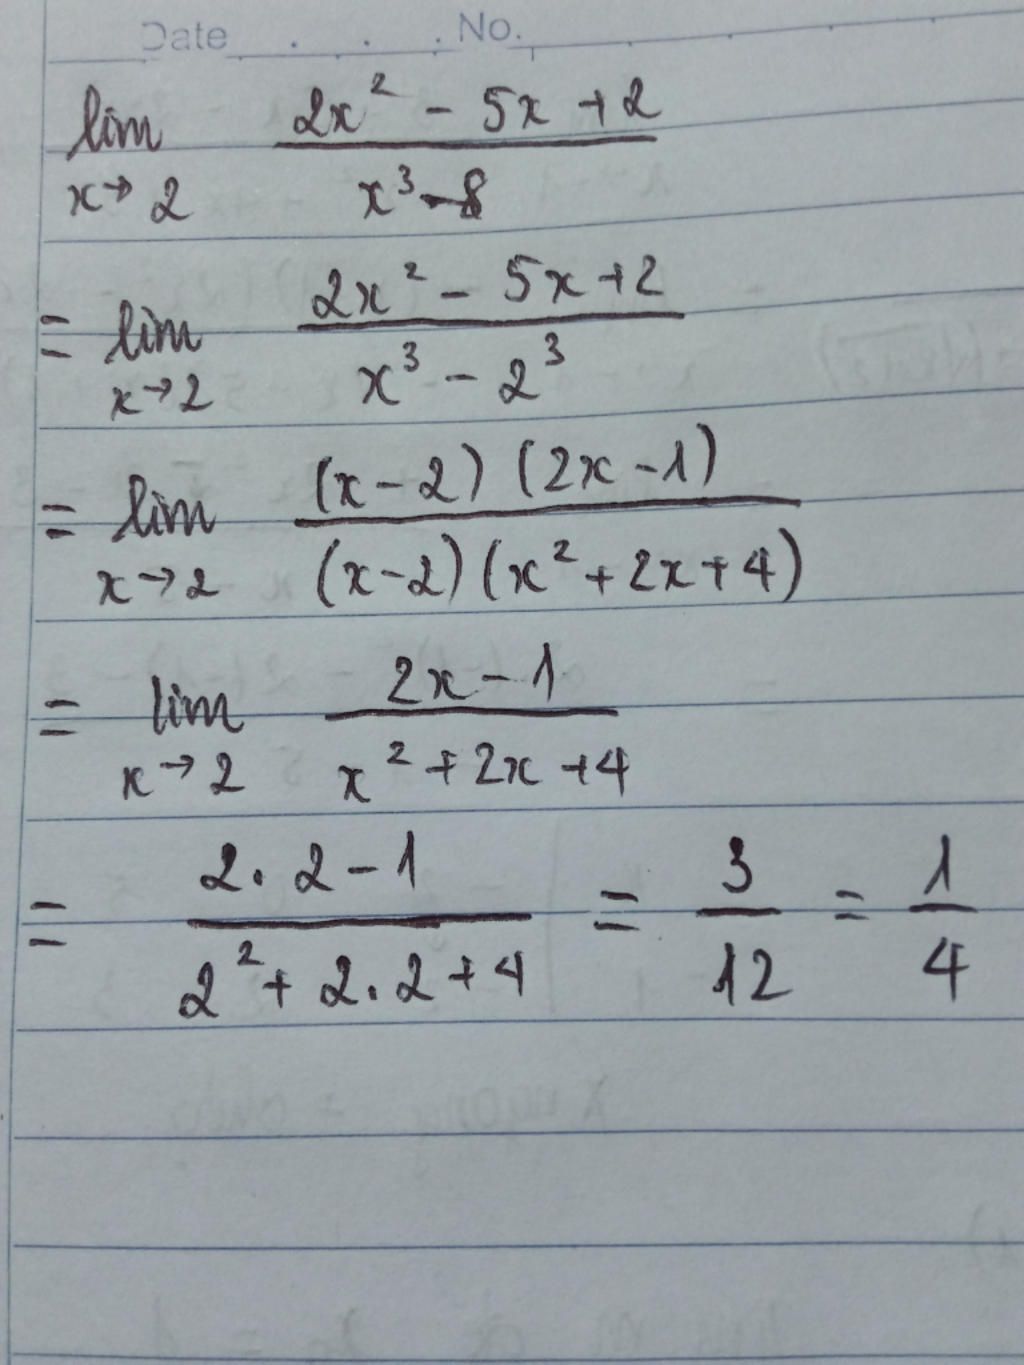 Date . . . No.
lim x→2 (2x² - 5x + 2)/(x³ - 8)
= lim x→2 (2x² - 5x + 2)/(x³ - 2³)
= lim x→2 ((x - 2)(2x - 1))/((x - 2)(x² + 2x + 4))
= lim x→2 (2x - 1)/(x² + 2x + 4)
= (2. 2 - 1)/(2² + 2. 2 + 4) = 3/12 = 1/4